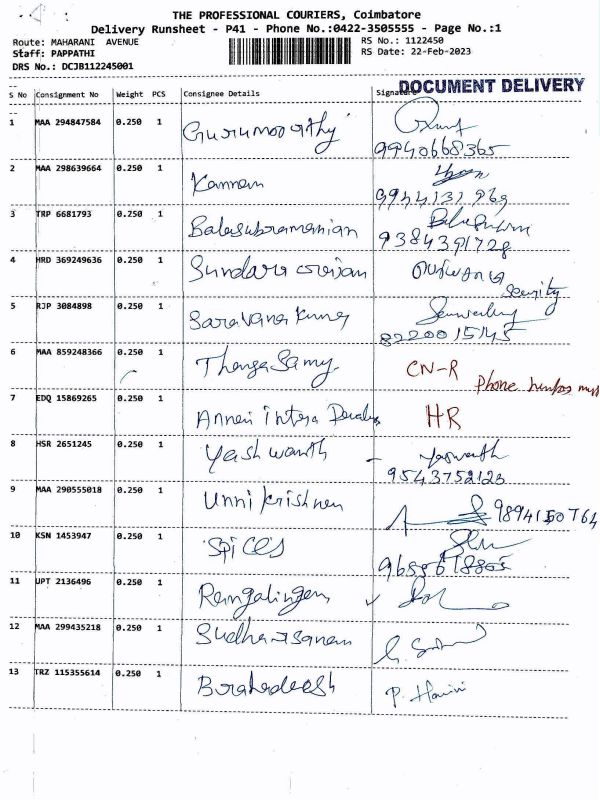 THE PROFESSIONAL COURIERS, Coimbatore
Delivery Runsheet - P41 - Phone No.:0422-3505555 - Page No.:1
Route: MAHARANI AVENUE
RS No.: 1122450
Staff: PAPPATHI
RS Date: 22-Feb-2023
DRS No.: DCJB112245001
DOCUMENT DELIVERY
S No Consignment No Weight PCS Consignee Details Signature
1 MAA 294847584 0.250 1 Gurumoorthy
9940668365
2 MAA 298639664 0.250 1 Kannan
3 TRP 6681793 0.250 1 Balasubramanian
9384391728
4 HRD 369249636 0.250 1
Security
5 RJP 3084898 0.250 1 Saravana Kumar
8220015145
6 MAA 859248366 0.250 1 Thanga Samy CN-R
Phone
7 EDQ 15869265 0.250 1 HR
8 HSR 2651245 0.250 1 Yash wanth - Yaswanth
9543752123
9 MAA 290555018 0.250 1 Unni Krishnan 9894150764
10 KSN 1453947 0.250 1 SPICES
11 UPT 2136496 0.250 1 Ramgalingam ✓
12 MAA 299435218 0.250 1 Sudharasanam
13 TRZ 115355614 0.250 1 P. Harini